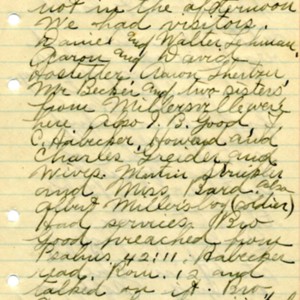 not in the afternoon
We had visitors.
Daniel and Walter Lehman,
Aaron and David
Hostetter, Aaron Shertzer,
Mr Becker and two sisters
from Millersville were
here. Also J. B. Good,
C. Habecker, Howard and
Charles Greider and
Wives. Martin
and Miss Bard. also
Albert Millersboy (earlier)
Had services. Bro
Good preached from
Psalms 42:11. Habecker
read Rom. 12 and
talked on it. Bro.